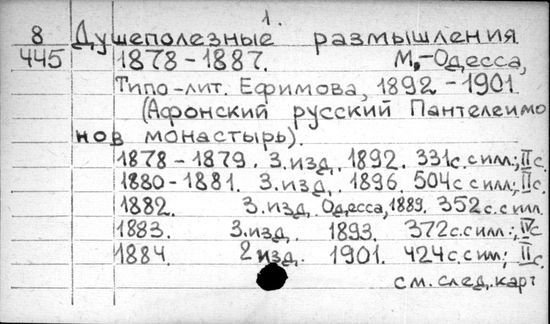 1.
8 Душеполезные размышления
445 1878-1887. М.-Одесса,
Типо-лит. Ефимова, 1892-1901.
(Афонский русский Пантелеимо
нов монастырь).
1878-1879. 3.изд. 1892. 331с.с илл.; IIс.
1880-1881. 3.изд. 1896. 504с.с илл.; IIс.
1882. 3.изд. Одесса, 1889. 352с.с илл.
1883. 3.изд. 1893. 372с.с илл.; IVс.
1884. 2 изд. 1901. 424с.с илл.; IIс.
см. след. карт